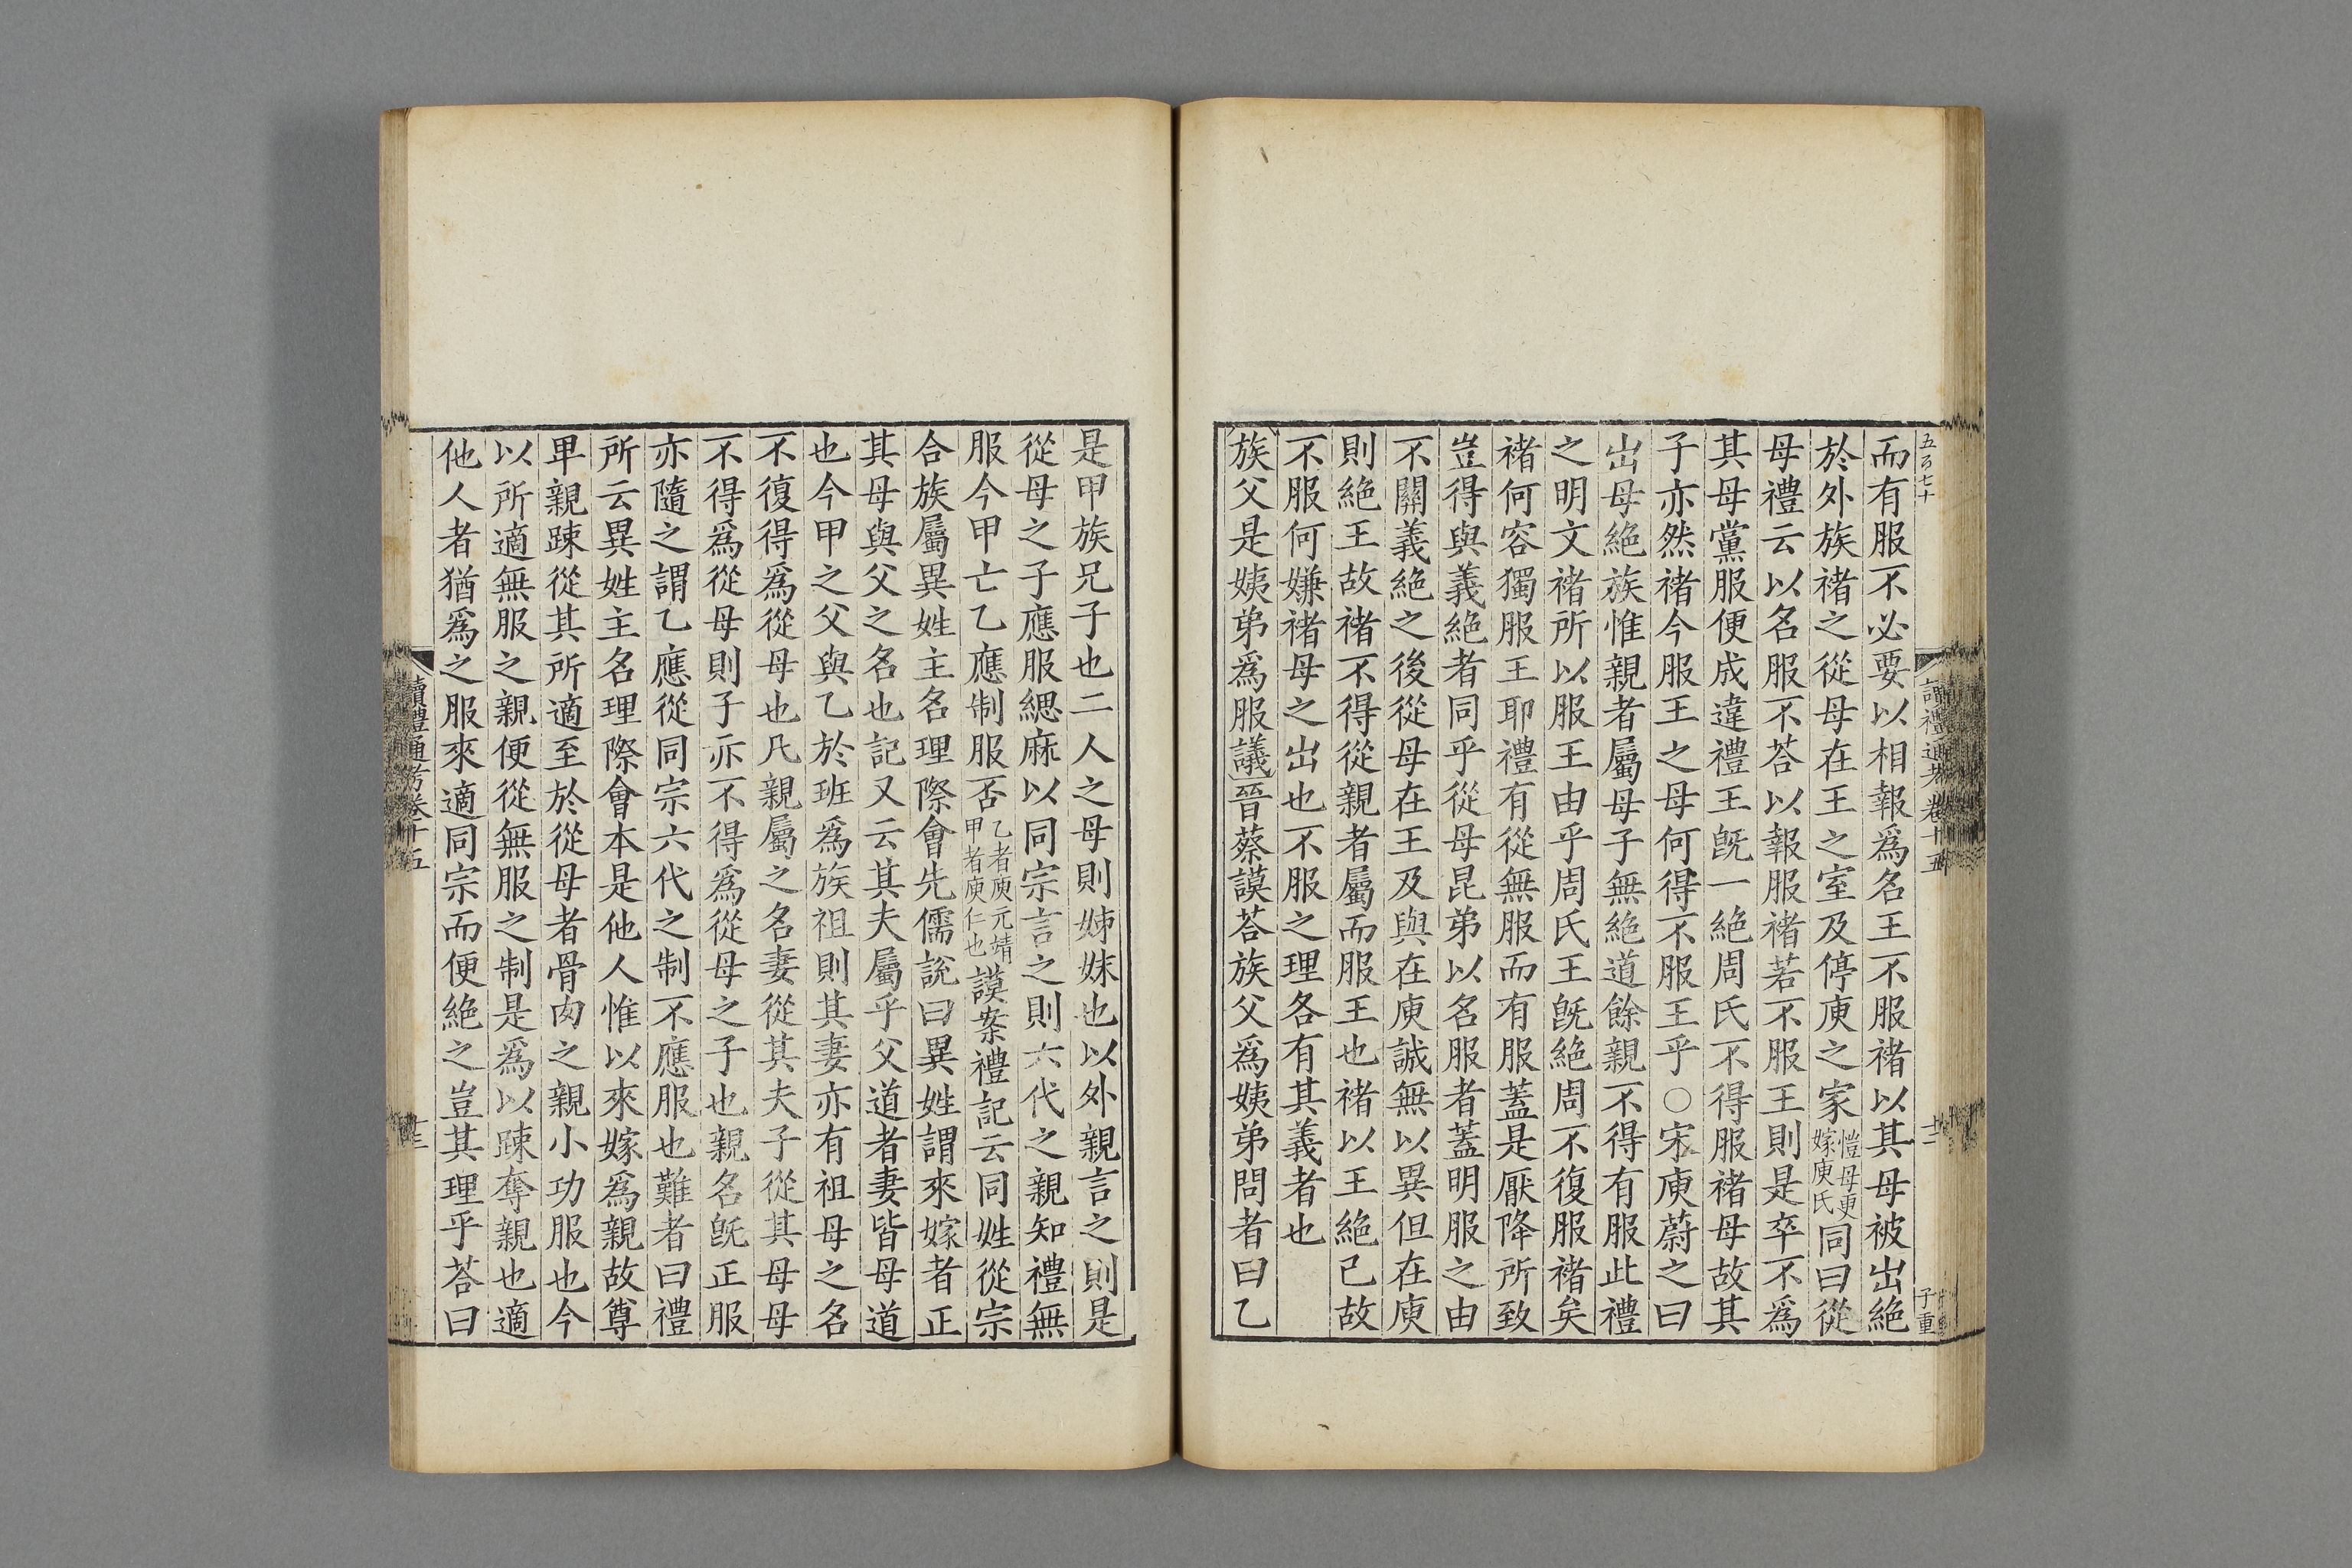 五百七十
讀禮通考卷十五
子重
而有服不必要以相報爲名王不服禇以其母被出絕
於外族禇之從母在王之室及停庾之家愷母更嫁庾氏同曰從
母禮云以名服不荅以報服禇若不服王則是卒不爲
其母黨服便成違禮王旣一絕周氏不得服禇母故其
子亦然禇今服王之母何得不服王乎○宋庾蔚之曰
出母絕族惟親者屬母子無絕道餘親不得有服此禮
之明文禇所以服王由乎周氏王旣絕周不復服禇矣
禇何容獨服王耶禮有從無服而有服蓋是厭降所致
豈得與義絕者同乎從母昆弟以名服者蓋明服之由
不關義絕之後從母在王及與在庾誠無以異但在庾
則絕王故禇不得從親者屬而服王也禇以王絕己故
不服何嫌禇母之出也不服之理各有其義者也
族父是姨弟爲服議晉蔡謨荅族父爲姨弟問者曰乙
是甲族兄子也二人之母則姊妹也以外親言之則是
從母之子應服緦麻以同宗言之則六代之親知禮無
服今甲亡乙應制服否乙者庾元靖甲者庾仁也謨案禮記云同姓從宗
合族屬異姓主名理際會先儒說曰異姓謂來嫁者正
其母與父之名也記又云其夫屬乎父道者妻皆母道
也今甲之父與乙於班爲族祖則其妻亦有祖母之名
不復得爲從母也凡親屬之名妻從其夫子從其母母
不得爲從母則子亦不得爲從母之子也親名旣正服
亦隨之謂乙應從同宗六代之制不應服也難者曰禮
所云異姓主名理際會本是他人惟以來嫁爲親故尊
卑親踈從其所適至於從母者骨肉之親小功服也今
以所適無服之親便從無服之制是爲以踈奪親也適
他人者猶爲之服來適同宗而便絕之豈其理乎荅曰
讀禮通考卷十五